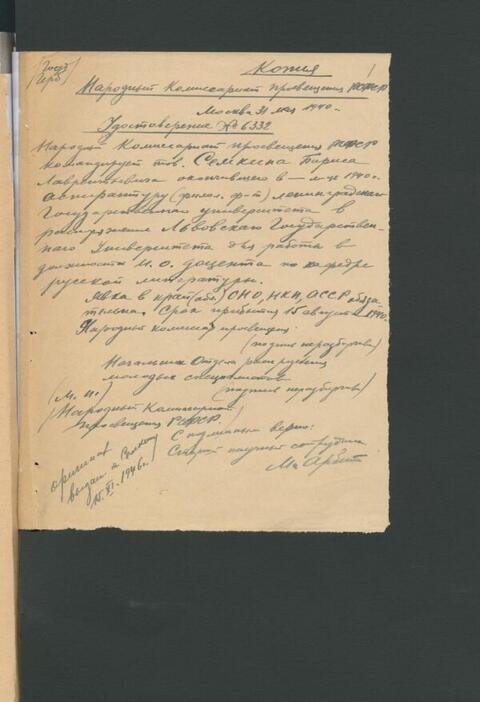 [Госуд.
герб]
Копия
1
Народный Комиссариат просвещения РСФСР
Москва 31 мая 1940 г.
Удостоверение № 6332
Народный Комиссариат просвещения РСФСР
командирует тов. Семкина Бориса
Лаврентьевича окончившего в — м-це 1940 г.
аспирантуру (филол. ф-т) Ленинградского
Государственного университета в
распоряжение Львовского Государствен-
ного Университета для работы в
должности и. о. доцента по кафедре
русской литературы.
Явка в край (обл.) ОНО, НКП, АССР обяза-
тельна. Срок прибытия 15 августа 1940 г.
Народный комиссар просвещения:
(подпись неразборчива)
Начальник Отдела распределения
молодых специалистов
(подпись неразборчива)
(М. П.)
Народный Комиссариат
просвещения РСФСР
С подлинным верно:
Старший научный сотрудник
оригинал
выдан т. Семкину
15. XI. 1946 г.